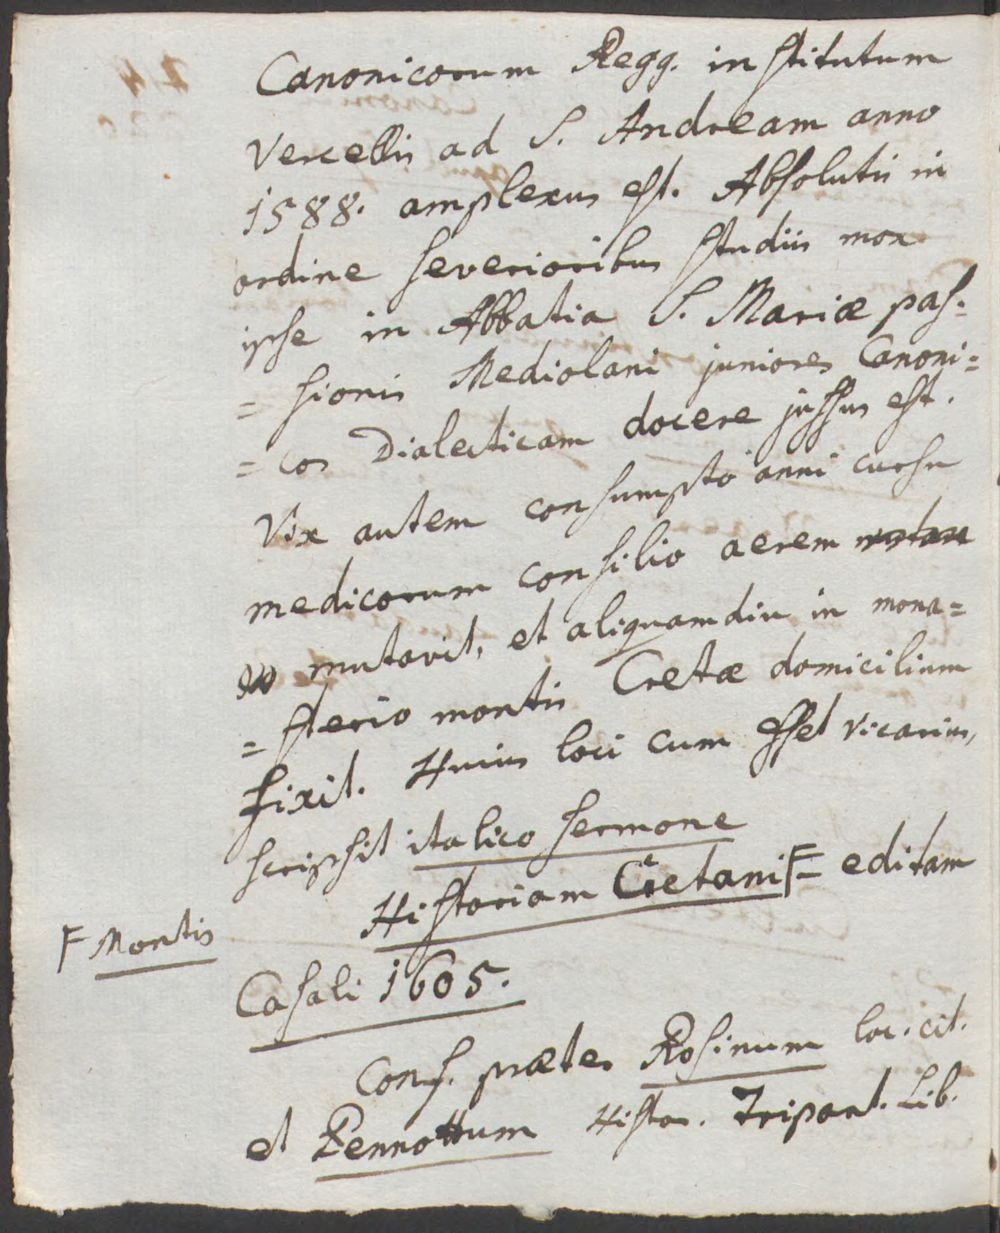 Canonicorum Regg. institutum
Vercellis ad S. Andream anno
1588. amplexus est. Absolutis in
ordine severioribus studiis mox
ipse in Abbatia S. Mariæ pas=
= sionis Mediolani juniores Canoni=
= cos Dialecticam docere jussus est.
Vix autem consumpto anni cursu
medicorum consilio aerem
mutavit, et aliquamdiu in mona=
= sterio montis Cretæ domicilium
fixit. Huius loci cum esset vicarius,
scripsit italico sermone
Historiam Cretani F editam
F Montis
Casali 1605.
Conf. præter Rosinum loc. cit.
et Pennottum Histor. Tripart. Lib.